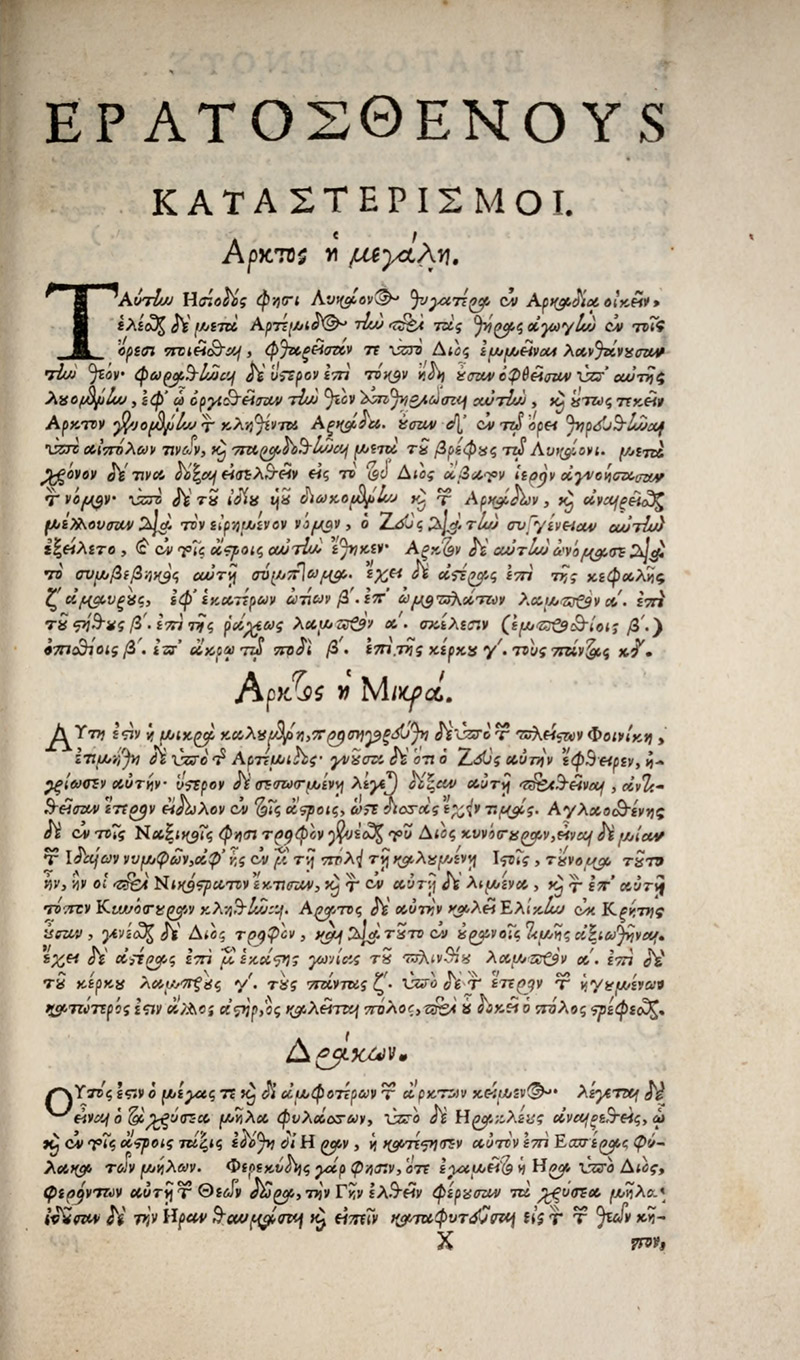 ΕΡΑΤΟΣΘΕΝΟΥS
ΚΑΤΑΣΤΕΡΙΣΜΟΙ.
Αρκτος ἡ μεγάλη.
ΤΑύτἰω Ησίοδός φησι Λυκάον@ θυγατέρα ἐν Αρκαδία οἰκεῖν,
ἑλέσθαι δὲ μετὰ Αρτέμιδ@ τἰω περὶ τὰς θήρας ἀγωγἰω ἐν τοῖς
ὄρεσι ποιεῖσθαι, φθαρεῖσάν τε ὑπὸ Διὸς ἐμμεῖναι λανθάνουσαν
τἰω θεόν· φωραθἰῶαι δὲ ὕστερον ἐπὶ τόκον ἤδη οὖσαν ὀφθεῖσαν ὑπ' αὐτῆς
λουομένἰω, ἐφ' ᾧ ὀργισθεῖσαν τἰω θεὸν ἀποθηριῶσαι αὐτἰω, καὶ οὕτως τεκεῖν
Αρκτον γενομένἰω τὸν κληθέντα Αρκάδα. οὖσαν δ' ἐν τῷ ὄρει θηρευθἰῶαι
ὑπὸ αἰπόλων τινῶν, καὶ παραδοθἰῶαι μετὰ τοῦ βρέφους τῷ Λυκάονι. μετὰ
χρόνον δέ τινα δόξαι εἰσελθεῖν εἰς τὸ τοῦ Διὸς ἄβατον ἱερὸν ἀγνοήσασαν
τὸν νόμον· ὑπὸ δὲ τοῦ ἰδίου υἱοῦ διωκομένἰω καὶ τῶν Αρκάδων, καὶ ἀναιρεῖσθαι
μέλλουσαν διὰ τὸν εἰρημένον νόμον, ὁ Ζεὺς διὰ τἰω συγγένειαν αὐτἰω
ἐξείλετο, καὶ ἐν τοῖς ἄστροις αὐτἰω ἔθηκεν· Αρκτον δὲ αὐτἰω ὠνόμασε διὰ
τὸ συμβεβηκὸς αὐτῇ σύμπτωμα. ἔχει δὲ ἀστέρας ἐπὶ τῆς κεφαλῆς
ζ' ἀμαυροὺς, ἐφ' ἑκατέρων ὠτίων β'. ἐπ' ὠμοπλάτων λαμπρὸν α'. ἐπὶ
τοῦ στήθους β'. ἐπὶ τῆς ῥάχεως λαμπρὸν α'. σκέλεσιν (ἐμπροσθίοις β'.)
ὀπισθίοις β'. ἐπ' ἄκρῳ τῷ ποδὶ β'. ἐπὶ τῆς κέρκου γ'. τοὺς πάντας κδ'.
Αρκτος ἡ Μικρά.
ΑΥτη ἐστὶν ἡ μικρὰ καλουμένη, προσηγορεύθη δὲ ὑπὸ τῶν πλείστων Φοινίκη,
ἐτιμήθη δὲ ὑπὸ τῆς Αρτέμιδος· γνοῦσα δὲ ὅτι ὁ Ζεὺς αὐτὴν ἔφθειρεν, ἠ-
γρίωσεν αὐτήν· ὕστερον δὲ σεσωσμένῃ λέγεται δόξαν αὐτῇ περιθεῖναι, ἀντι-
θεῖσαν ἕτερον εἴδωλον ἐν τοῖς ἄστροις, ὥστε δισσὰς ἔχειν τιμάς. Αγλαοσθένης
δὲ ἐν τοῖς Ναξικοῖς φησι τροφὸν γενέσθαι τοῦ Διὸς κυνόσουραν, εἶναι δὲ μίαν
τῶν Ιδαίων νυμφῶν, ἀφ' ἧς ἐν μὲν τῇ πόλει τῇ καλουμένῃ Ιστοῖς, τοὔνομα τοῦτο
ἦν, ἣν οἱ περὶ Νικόστρατον ἔκτισαν, καὶ τὸν ἐν αὐτῇ δὲ λιμένα, καὶ τὸν ἐπ' αὐτῇ
τόπον Κυνόσουραν κληθἰῶαι. Αρατος δὲ αὐτὴν καλεῖ Ελίκἰω ἐκ Κρήτης
οὖσαν, γενέσθαι δὲ Διὸς τροφὸν, καὶ διὰ τοῦτο ἐν οὐρανοῖς τιμῆς ἀξιωθῆναι.
ἔχει δὲ ἀστέρας ἐπὶ μὲν ἑκάστης γωνίας τοῦ πλινθίου λαμπρὸν α'. ἐπὶ δὲ
τοῦ κέρκου λαμπροὺς γ'. τοὺς πάντας ζ'. ὑπὸ δὲ τὸν ἕτερον τῶν ἡγουμένων
κατώτερός ἐστιν ἄλλος ἀστὴρ, ὃς καλεῖται πόλος, περὶ ὃ δοκεῖ ὁ πόλος στρέφεσθαι.
Δράκων.
ΟΥτός ἐστιν ὁ μέγας τε καὶ δι ἀμφοτέρων τῶν ἄρκτων κείμεν@· λέγεται δὲ
εἶναι ὁ τὰ χρύσεα μῆλα φυλάσσων, ὑπὸ δὲ Ηρακλέους ἀναιρεθεὶς, ᾧ
καὶ ἐν τοῖς ἄστροις τάξις ἐδόθη δι Ηραν, ἣ κατέστησεν αὐτὸν ἐπὶ Εσπέρας φύ-
λακα τῶν μήλων. Φερεκύδης γάρ φησιν, ὅτε ἐγαμεῖτο ἡ Ηρα ὑπὸ Διὸς,
φερόντων αὐτῇ τῶν Θεῶν δῶρα, τὴν Γῆν ἐλθεῖν φέρουσαν τὰ χρύσεα μῆλα·
ἰδοῦσαν δὲ τὴν Ηραν θαυμάσαι καὶ εἰπεῖν καταφυτεῦσαι εἰς τὸν τῶν θεῶν κῆ-
X πον,